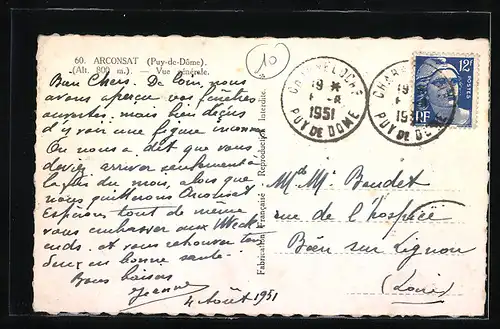 60. ARCONSAT (Puy-de-Dôme).
(Alt. 800 m.) — Vue générale.
10
Bien Chers. De loin nous
avons aperçu vos fenêtres
ouvertes mais bien déçus
d'y voir une figure inconnue
On nous a dit que vous
deviez arriver seulement à
la fin du mois, alors que
nous quitterons Arconsat
Espérons tout de même
vous embrasser aux Week
ends. et vous retrouver tous
deux en bonne santé.
Bons baisers
Jeanne
4 Août 1951
Fabrication Française - Reproduction Interdite.
19 *
1951
PUY DE DOME
19
PUY DE DOME
12F
POSTES
RF
Mr Mme Baudet
rue de l'hospice
Boën sur Lignon
(Loire)